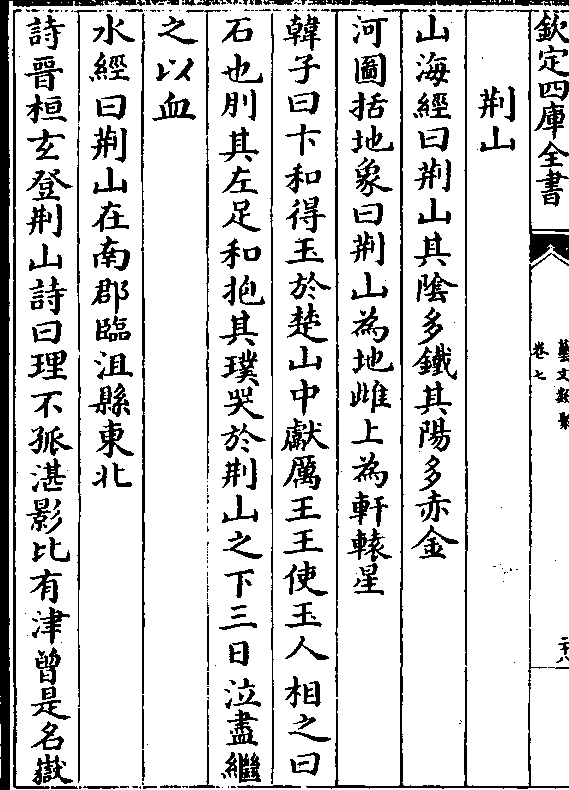 欽定四庫全書
藝文類聚
卷七
二八
荆山
山海經曰荆山其陰多鐵其陽多赤金
河圖括地象曰荆山為地雌上為軒轅星
韓子曰卞和得玉於楚山中獻厲王王使玉人相之曰
石也刖其左足和抱其璞哭於荆山之下三日泣盡繼
之以血
水經曰荆山在南郡臨沮縣東北
詩晉桓玄登荆山詩曰理不孤湛影比有津曾是名嶽